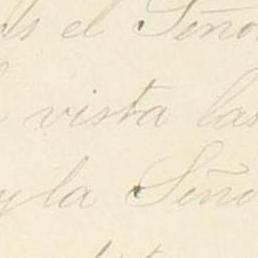 el Seño
vista las
y la Seño